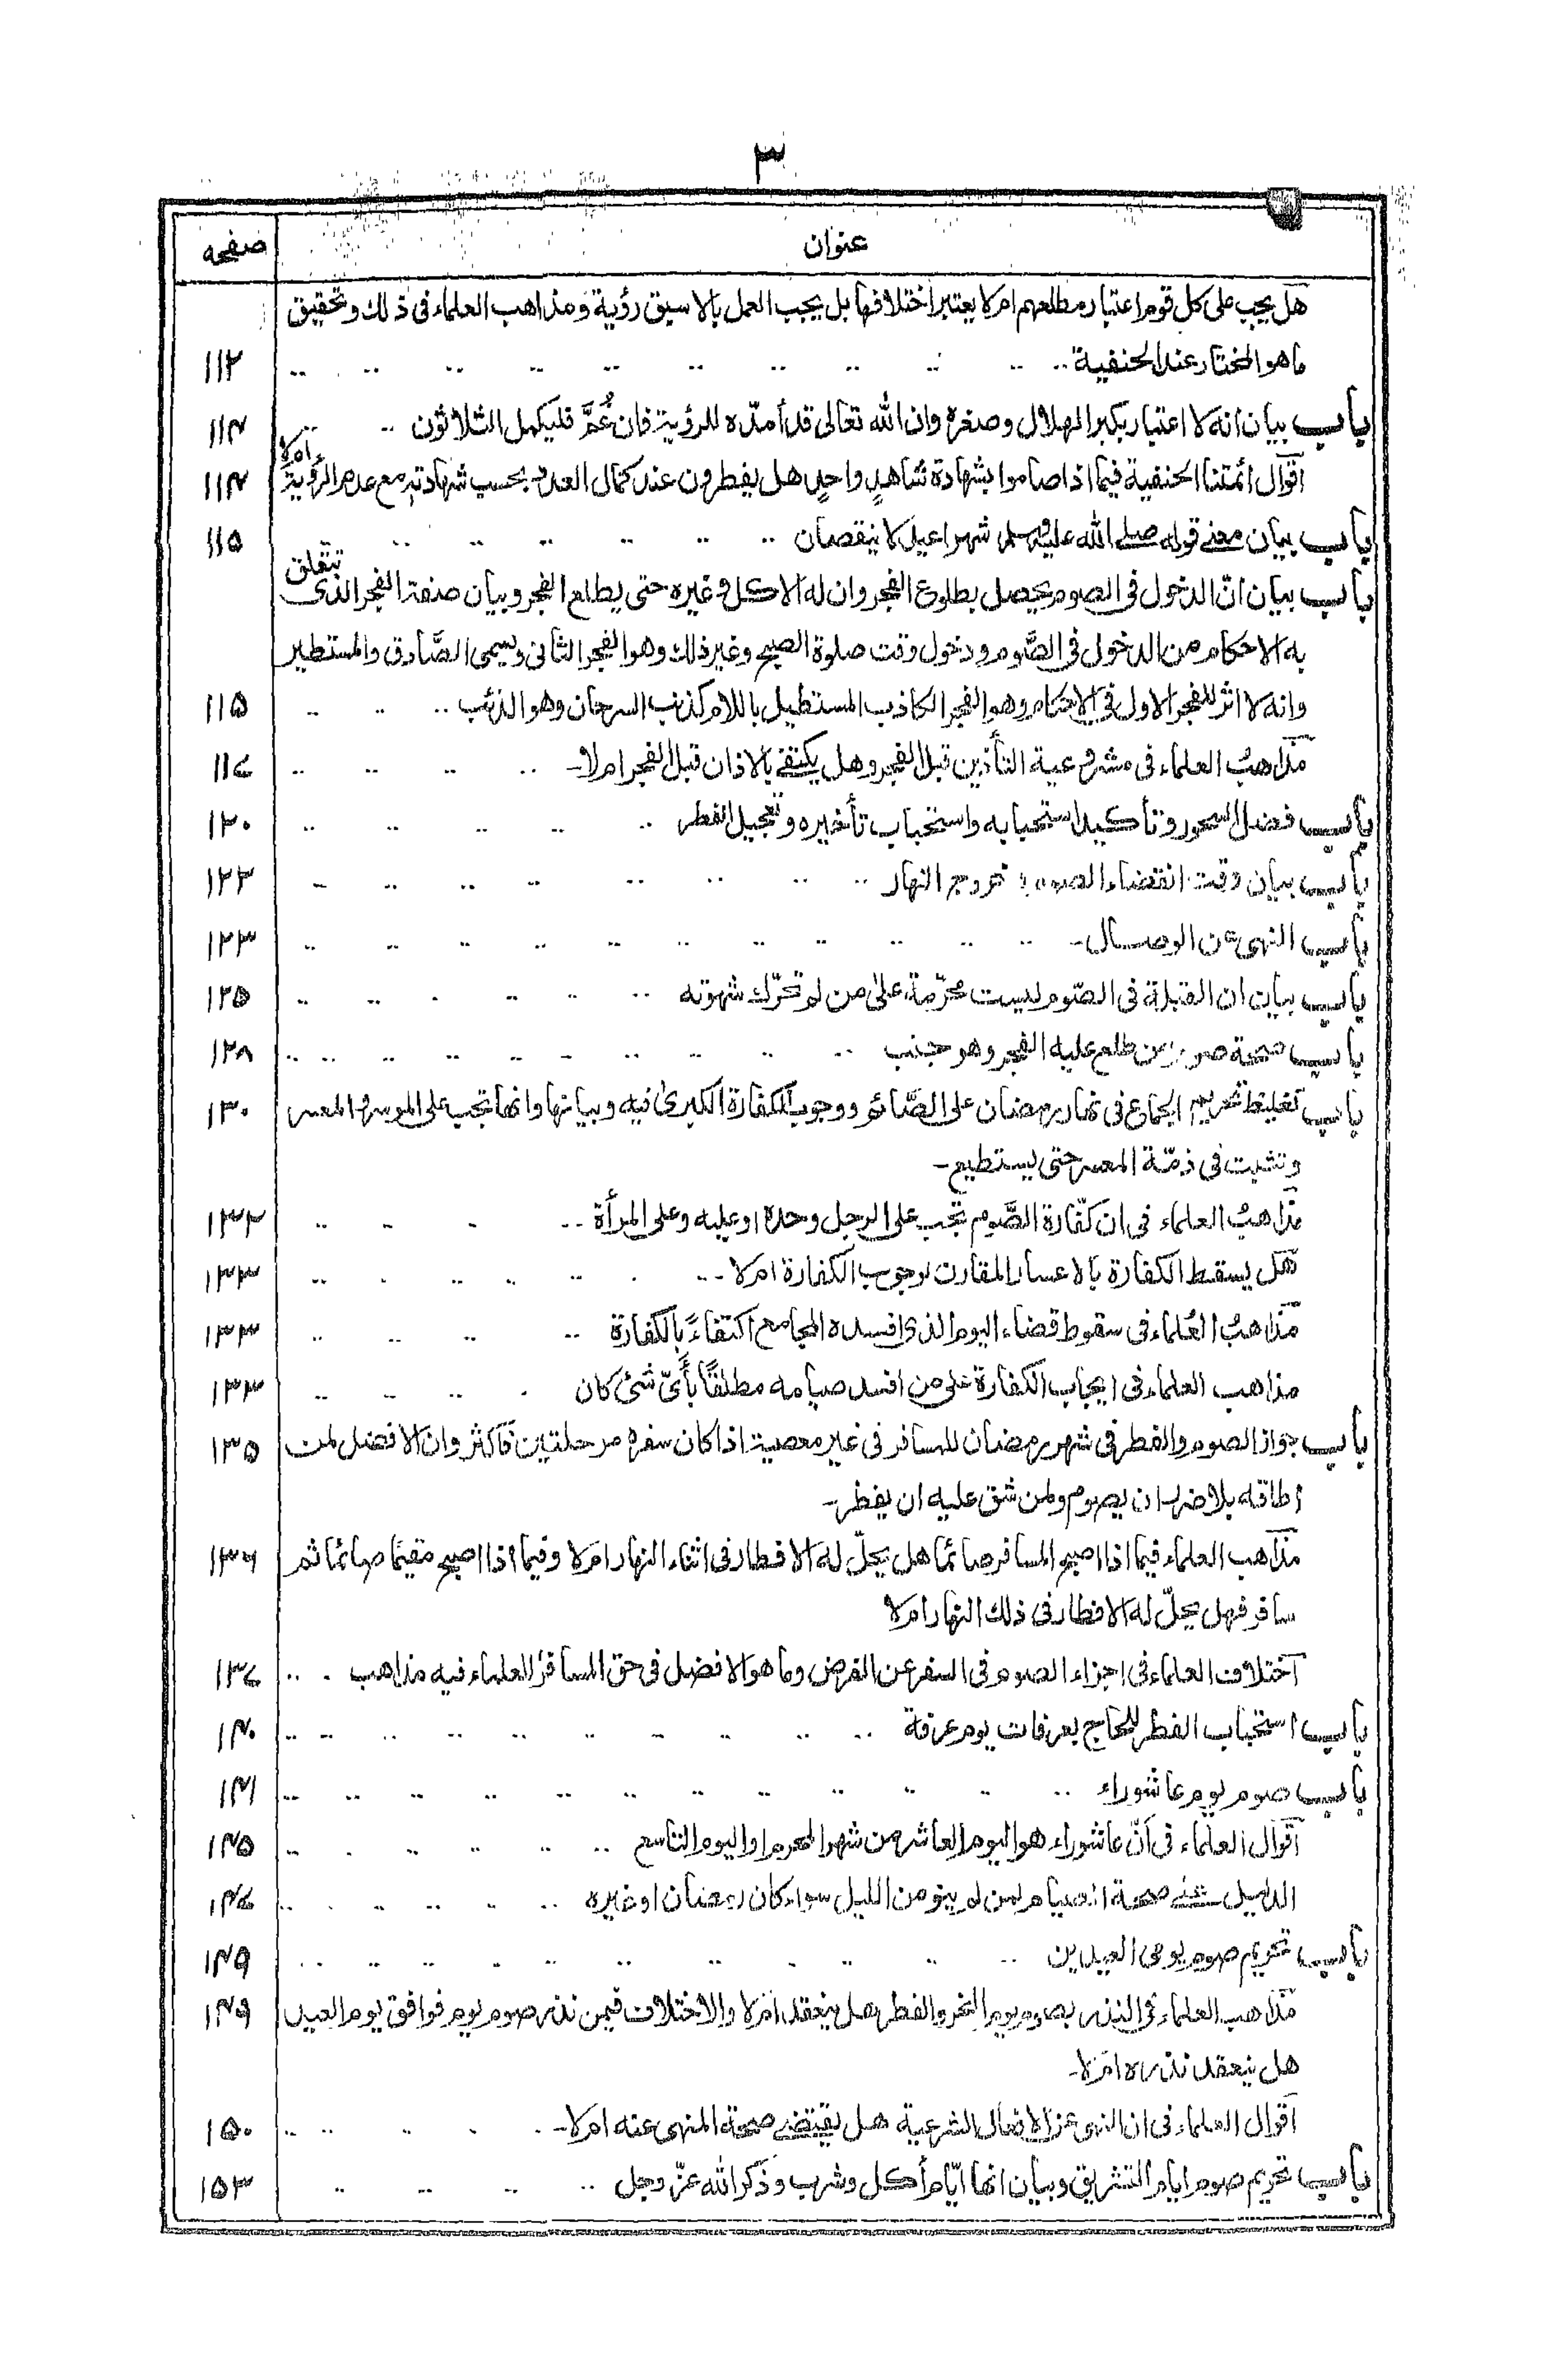 ٣
عنوان صفحه
هل يجب على كل قوم اعتبار مطلعهم ام لا يعتبر اختلافها بل يجب العمل بالاسبق رؤية ومذاهب العلماء فى ذلك وتحقيق
ما هو المختار عند الحنفية ١١٢
باب بيان انه لا اعتبار بكبر الهلال وصغره وان الله تعالى قد أمدّه للرؤية فان غُمَّ فليكمل الثلاثون ١١٤
اقوال ائمتنا الحنفية فيما اذا صاموا بشهادة شاهدٍ واحدٍ هل يفطرون عند كمال العدد بحسب شهادته مع عدم الرؤية ام لا ١١٤
باب بيان معنى قوله صلى الله عليه وسلم شهرا عيد لا ينقصان ١١٥
باب بيان انّ الدخول فى الصوم يحصل بطلوع الفجر وان له الاكل وغيره حتى يطلع الفجر وبيان صفة الفجر الذى تتعلق
به الاحكام من الدخول فى الصَّوم ودخول وقت صلوة الصبح وغير ذلك وهو الفجر الثانى ويسمى الصَّادق والمستطير
وانه لا اثر للفجر الاول فى الاحكام وهو الفجر الكاذب المستطيل باللام كذنب السرحان وهو الذئب ١١٥
مذاهبُ العلماء فى مشروعية التأذين قبل الفجر وهل يكتفى بالاذان قبل الفجر ام لا- ١١٧
باب فضل السحور وتأكيد استحبابه واستحباب تأخيره وتعجيل الفطر ١٢٠
باب بيان وقت انقضاء الصوم و خروج النهار ١٢٢
باب النهى عن الوصال- ١٢٣
باب بيان ان القبلة فى الصّوم ليست محرّمة على من لم تحرّك شهوته ١٢٥
باب صحة صوم من طلع عليه الفجر وهو جنب ١٢٨
باب تغليظ تحريم الجماع فى نهار رمضان على الصَّائم ووجوب الكفارة الكبرىٰ فيه وبيانها وانها تجب على الموسر والمعسر ١٣٠
وتثبت فى ذمّة المعسر حتى يستطيع-
مذاهبُ العلماء فى ان كفّارة الصَّوم تجب على الرجل وحده اوعليه وعلى المرأة ١٣٢
هل يسقط الكفارة بالاعسار المقارن لوجوب الكفارة ام لا- ١٣٣
مذاهبُ العُلماء فى سقوط قضاء اليوم الذى افسده المجامع اكتفاءً بالكفارة ١٣٣
مذاهب العلماء فى ايجاب الكفارة على من افسد صيامه مطلقًا بأىّ شئ كان ١٣٣
باب جواز الصوم والفطر فى شهر رمضان للمسافر فى غير معصية اذا كان سفره مرحلتين فاكثر وان الافضل لمن ١٣٥
اطاقه بلا ضرر ان يصوم ولمن شق عليه ان يفطر-
مذاهب العلماء فيما اذا اصبح المسافر صائما هل يحلّ له الافطار فى اثناء النهار ام لا وفيما اذا اصبح مقيما صائما ثم ١٣٦
سافر فهل يحلّ له الافطار فى ذلك النهار ام لا
اختلاف العلماء فى اجزاء الصوم فى السفر عن الفرض وما هو الافضل فى حق المسافر للعلماء فيه مذاهب ١٣٧
باب استحباب الفطر للحاج بعرفات يوم عرفة ١٤٠
باب صوم يوم عاشوراء ١٤١
اقوال العلماء فى أنّ عاشوراء هو اليوم العاشر من شهر المحرم او اليوم التاسع ١٤٥
الدليل على صحة الصيام لمن لم ينو من الليل سواء كان رمضان او غيره ١٤٧
باب تحريم صوم يومى العيدين ١٤٩
مذاهب العلماء فى النذر بصوم يوم النحر والفطر هل ينعقد ام لا والاختلاف فيمن نذر صوم يوم فوافق يوم العيد ١٤٩
هل ينعقد نذره ام لا-
اقوال العلماء فى ان النهى عن الافعال الشرعية هل يقتضى صحة المنهى عنه ام لا- ١٥٠
باب تحريم صوم ايام التشريق وبيان انها ايّام أكل وشرب وذكر الله عزّ وجل ١٥٣